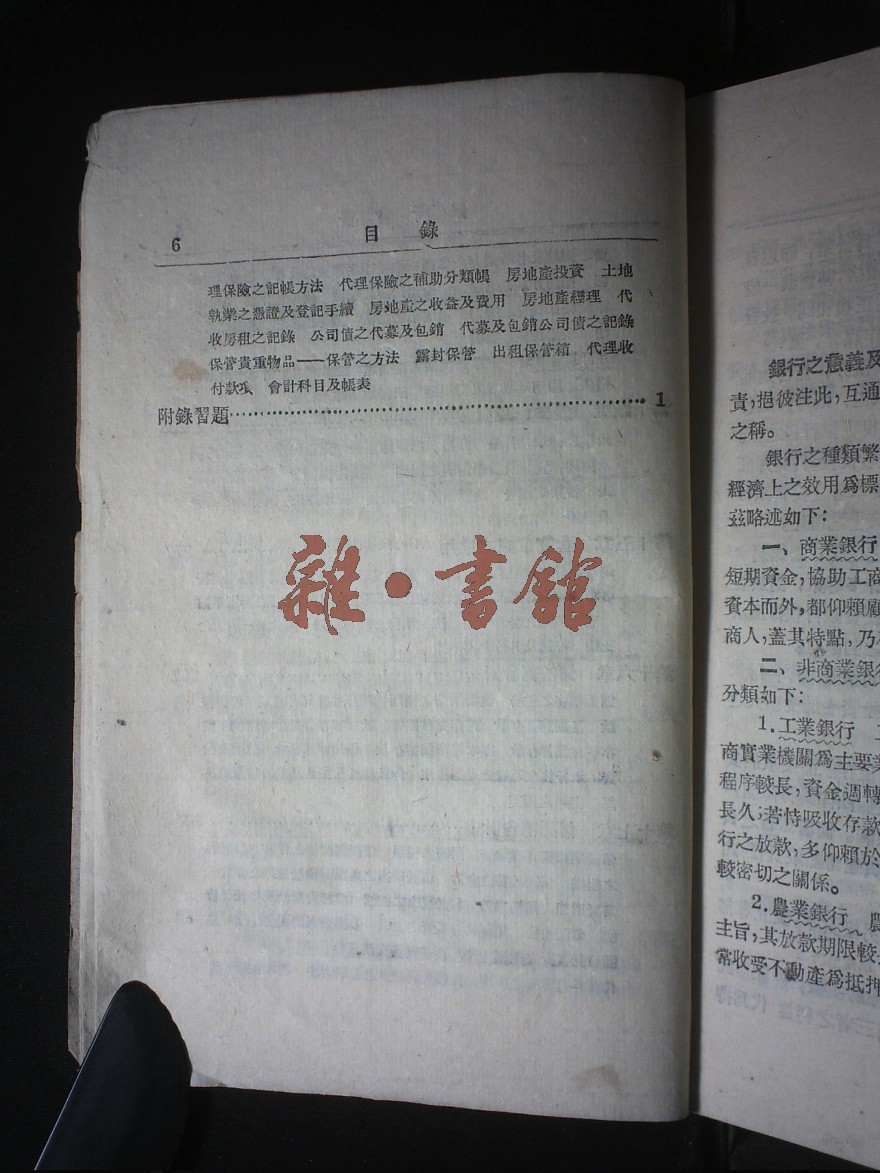 6
目 錄
理保險之記帳方法 代理保險之補助分類帳 房地產投資 土地
執業之憑證及登記手續 房地產之收益及費用 房地產經理 代
收房租之記錄 公司債之代募及包銷 代募及包銷公司債之記錄
保管貴重物品——保管之方法 露封保管 出租保管箱 代理收
付款項 會計科目及帳表
附錄習題 1
雜·書館
銀行之意義及
責,挹彼注此,互通
之稱。
銀行之種類繁
經濟上之效用爲標
茲略述如下:
一、商業銀行
短期資金,協助工商
資本而外,都仰賴顧
商人,蓋其特點,乃
二、非商業銀行
分類如下:
1.工業銀行
商實業機關爲主要業
程序較長,資金週轉
長久;若恃吸收存款
行之放款,多仰賴於
較密切之關係。
2.農業銀行 農
主旨,其放款期限較
常收受不動產爲抵押